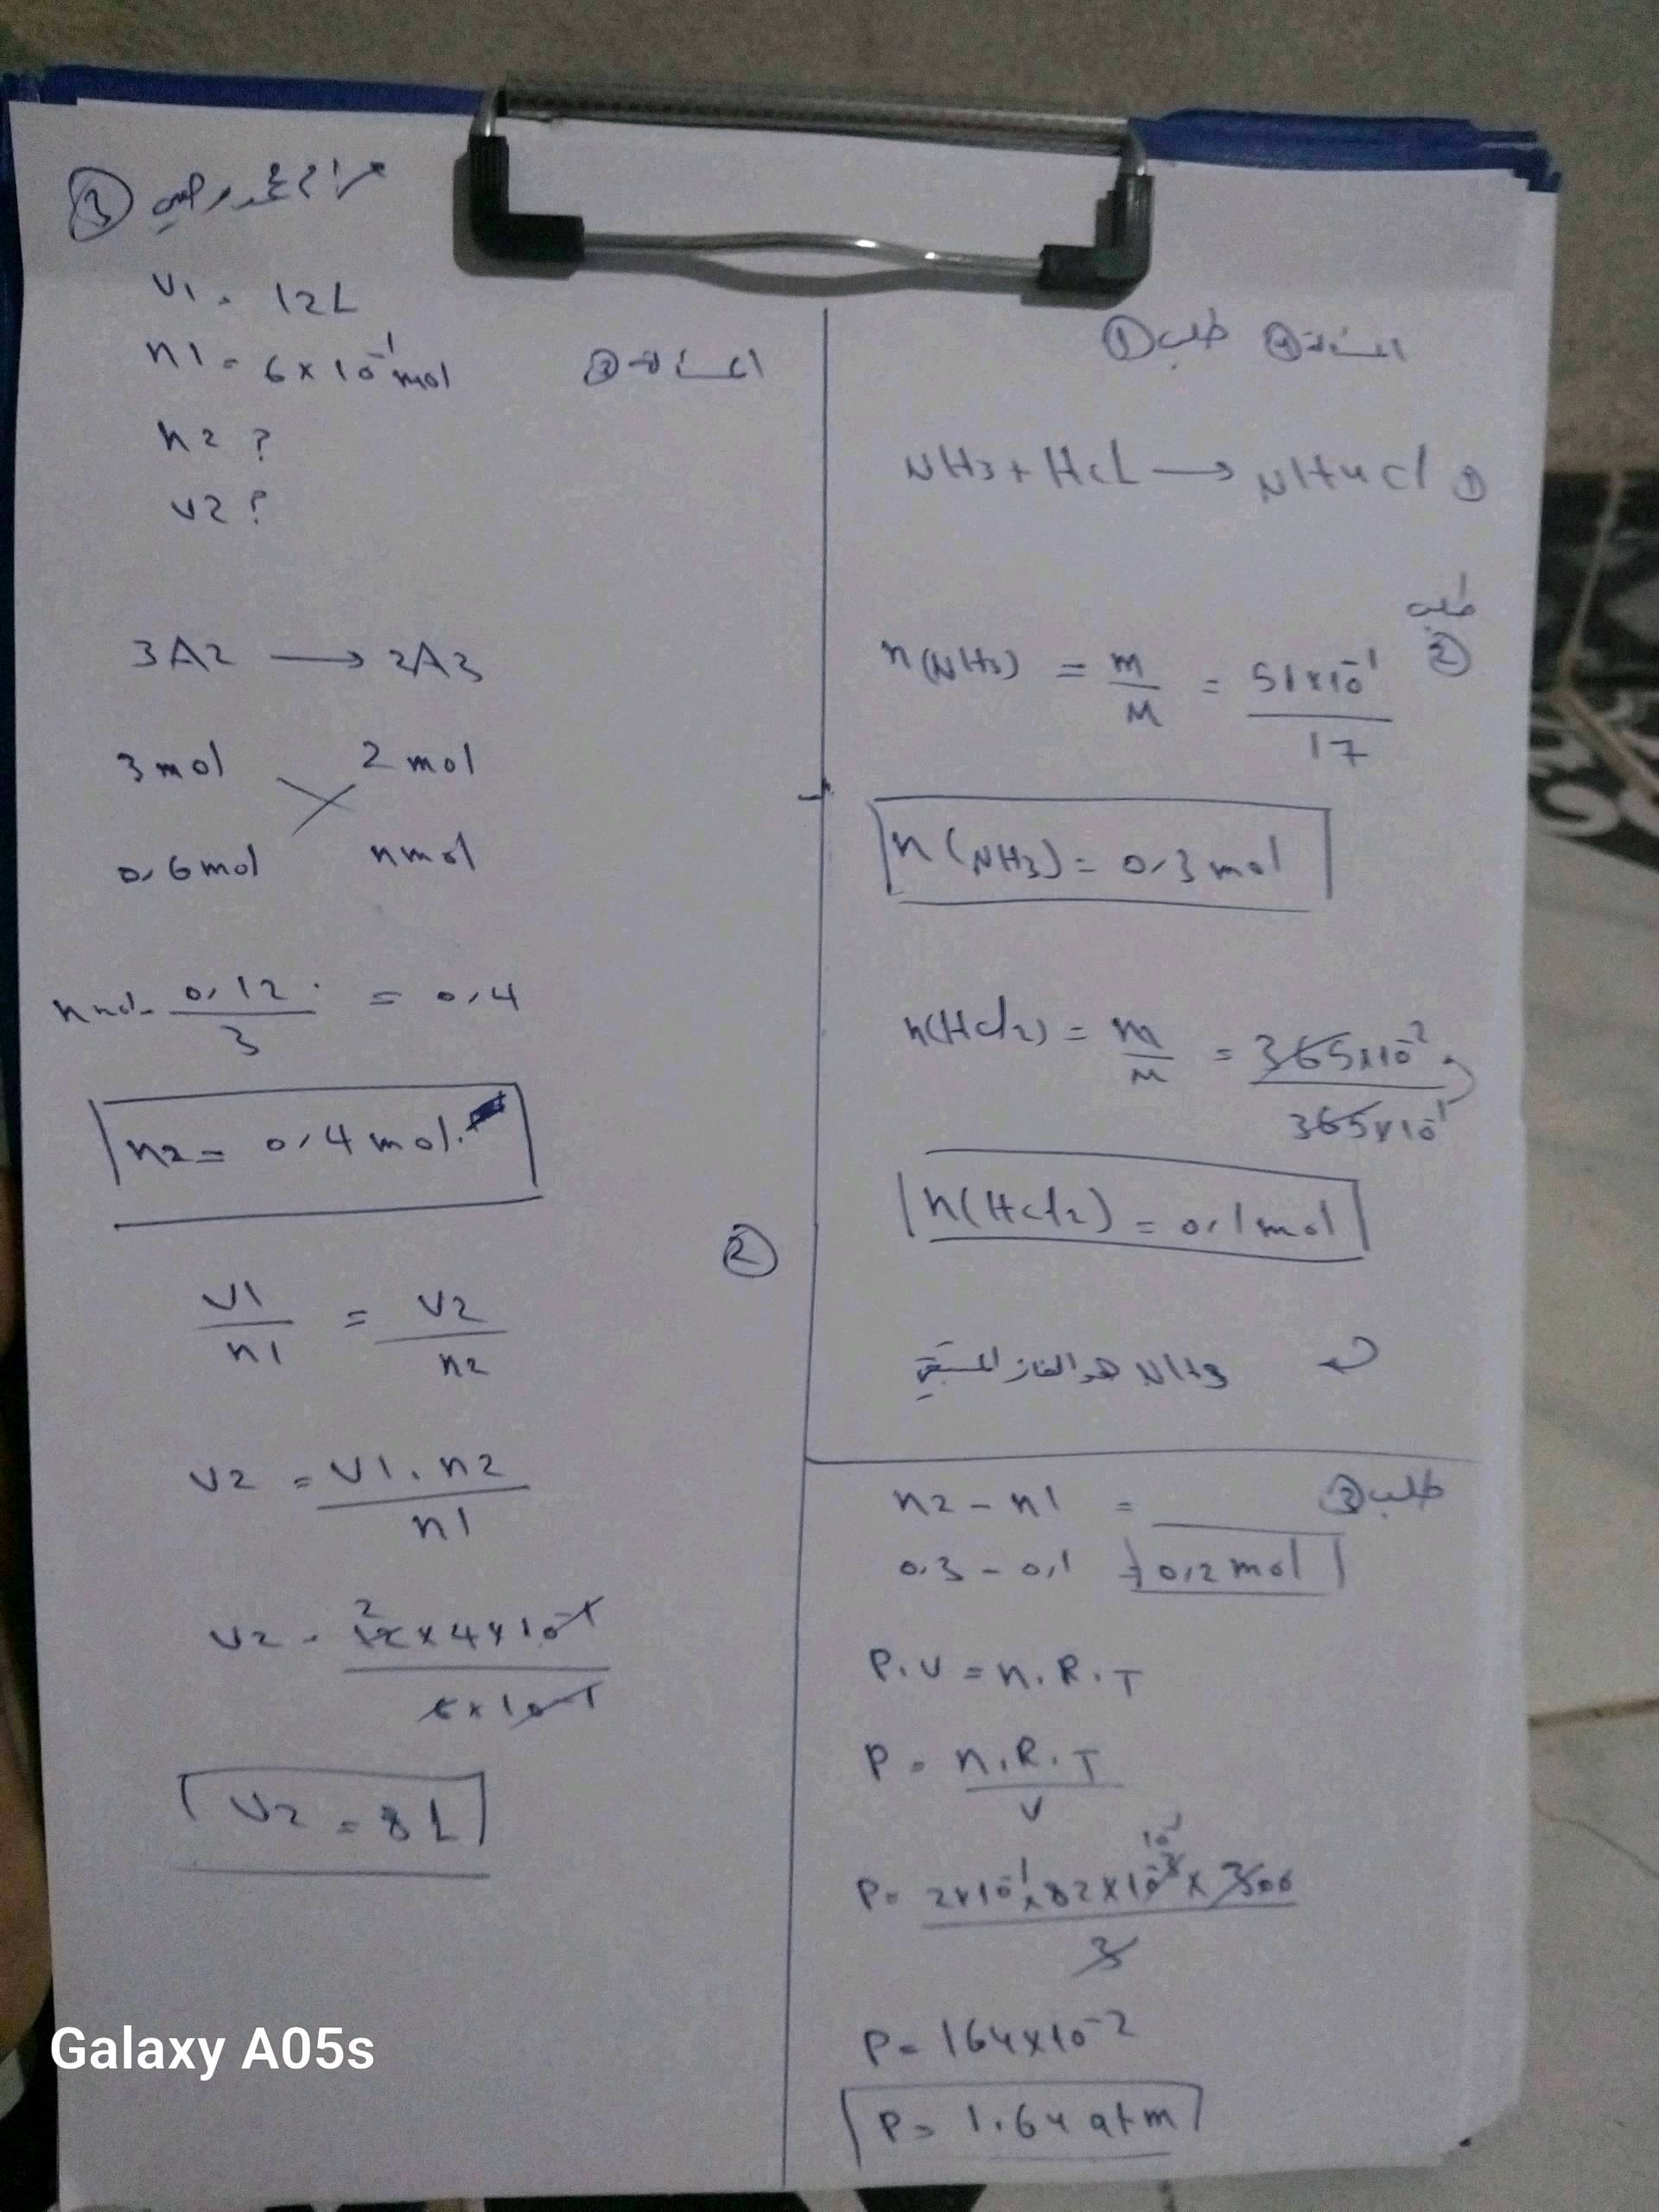 ③
V1 = 12L
n1 = 6x10^-1 mol
المسألة ③
n2 ?
V2 ?
3A2 → 2A3
3mol 2mol
0,6mol nmol
nmol = 0,12 / 3 = 0,4
n2 = 0,4 mol.
②
V1 / n1 = V2 / n2
V2 = V1 . n2 / n1
V2 = 12 x 4 x 10^-1 / 6 x 10^-1
2
V2 = 8L
طلب ①
NH3 + HCl → NH4Cl ①
طلب ②
n(NH3) = m / M = 51x10^-1 / 17
n(NH3) = 0,3 mol
n(HCl2) = m / M = 365x10^-2 / 365x10^-1
n(HCl2) = 0,1 mol
NH3 هو الغاز المتبقي
طلب ③
n2 - n1 =
0.3 - 0,1 = 0,2 mol
P.V = n.R.T
P = n.R.T / V
P = 2x10^-1 x 82x10^-3 x 300 / 3
P = 164x10^-2
P = 1.64 atm
Galaxy A05s